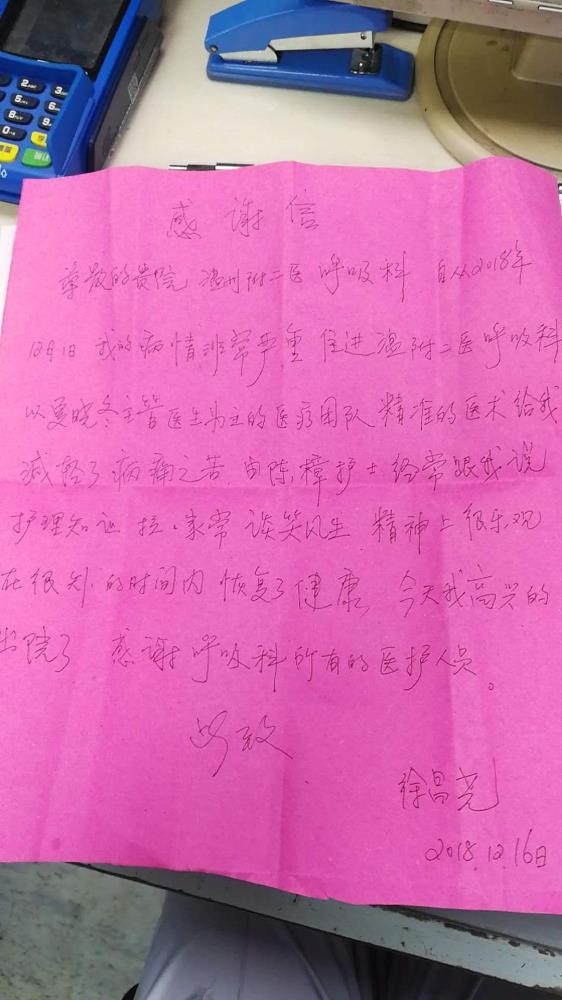 感谢信
尊敬的贵院 温州附二医 呼吸科 自从2018年
12月1日 我的病情非常严重 住进温附二医呼吸科
以夏晓冬主管医生为主的医疗团队 精准的医术给我
减轻了病痛之苦 由陈樟护士经常跟我说
护理知识 拉家常 谈笑风生 精神上很乐观
在很短的时间内 恢复了健康 今天我高兴的
出院了 感谢呼吸科所有的医护人员。
此致
徐昌尧
2018.12.16日